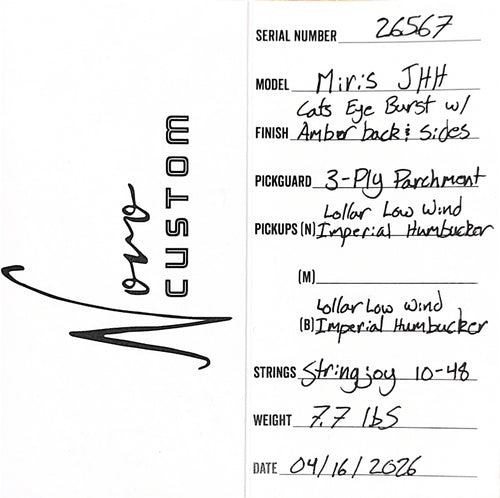 Nomo
CUSTOM
SERIAL NUMBER 26567
MODEL Miris JHH
Cats Eye Burst w/
FINISH Amber back & Sides
PICKGUARD 3-Ply Parchment
Lollar Low Wind
PICKUPS (N) Imperial Humbucker
(M)
Lollar Low Wind
(B) Imperial Humbucker
STRINGS Stringjoy 10-48
WEIGHT 7.7 lbs
DATE 04/16/2026